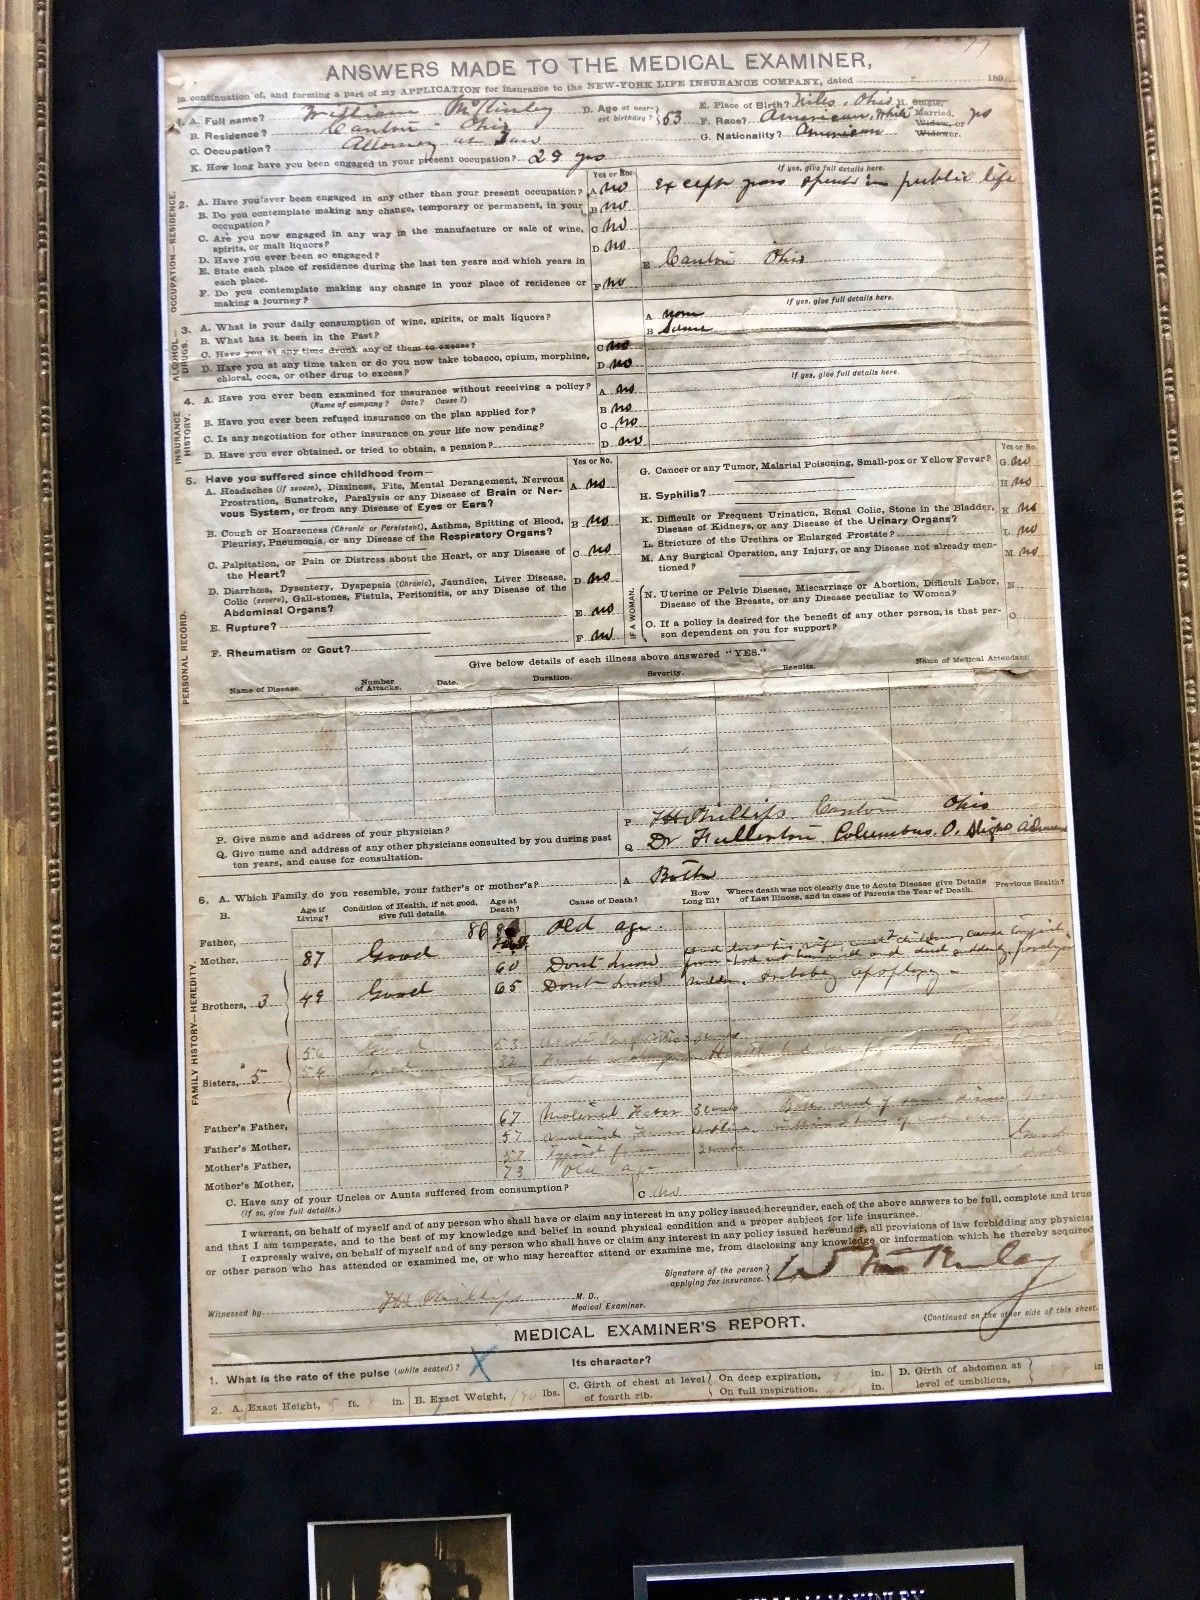 ANSWERS MADE TO THE MEDICAL EXAMINER,
In continuation of, and forming a part of my APPLICATION for insurance to the NEW-YORK LIFE INSURANCE COMPANY, dated 189
1. A. Full name? William McKinley D. Age at nearest birthday? 53 E. Place of Birth? Niles, Ohio H. Single,
B. Residence? Canton Ohio F. Race? American, White Married, yes Widow, or
C. Occupation? Attorney at Law G. Nationality? American Widower.
K. How long have you been engaged in your present occupation? 29 yrs
OCCUPATION—RESIDENCE.
Yes or No. If yes, give full details here.
2. A. Have you ever been engaged in any other than your present occupation? A no Except years spent in public life
B. Do you contemplate making any change, temporary or permanent, in your occupation? B no
C. Are you now engaged in any way in the manufacture or sale of wine, spirits, or malt liquors? C no
D. Have you ever been so engaged? D. no
E. State each place of residence during the last ten years and which years in each place. E Canton Ohio
F. Do you contemplate making any change in your place of residence or making a journey? F no
ALCOHOL—DRUGS.
If yes, give full details here.
3. A. What is your daily consumption of wine, spirits, or malt liquors? A none
B. What has it been in the Past? B Same
C. Have you at any time drunk any of them to excess? C no
D. Have you at any time taken or do you now take tobacco, opium, morphine, chloral, coca, or other drug to excess? D. no
INSURANCE HISTORY.
If yes, give full details here.
4. A. Have you ever been examined for insurance without receiving a policy? A no
(Name of company? Date? Cause?)
B. Have you ever been refused insurance on the plan applied for? B no
C. Is any negotiation for other insurance on your life now pending? C no
D. Have you ever obtained, or tried to obtain, a pension? D no
PERSONAL RECORD.
5. Have you suffered since childhood from— Yes or No.
A. Headaches (if severe), Dizziness, Fits, Mental Derangement, Nervous Prostration, Sunstroke, Paralysis or any Disease of Brain or Nervous System, or from any Disease of Eyes or Ears? A. no
B. Cough or Hoarseness (Chronic or Persistent), Asthma, Spitting of Blood, Pleurisy, Pneumonia, or any Disease of the Respiratory Organs? B no
C. Palpitation, or Pain or Distress about the Heart, or any Disease of the Heart? C no
D. Diarrhœa, Dysentery, Dyspepsia (Chronic), Jaundice, Liver Disease, Colic (severe), Gall-stones, Fistula, Peritonitis, or any Disease of the Abdominal Organs? D. no
E. Rupture? E. no
F. Rheumatism or Gout? F. no
Yes or No.
G. Cancer or any Tumor, Malarial Poisoning, Small-pox or Yellow Fever? G. no
H. Syphilis? H no
K. Difficult or Frequent Urination, Renal Colic, Stone in the Bladder, Disease of Kidneys, or any Disease of the Urinary Organs? K no
L. Stricture of the Urethra or Enlarged Prostate? L no
M. Any Surgical Operation, any Injury, or any Disease not already mentioned? M no
IF A WOMAN.
N. Uterine or Pelvic Disease, Miscarriage or Abortion, Difficult Labor, Disease of the Breasts, or any Disease peculiar to Women? N
O. If a policy is desired for the benefit of any other person, is that person dependent on you for support? O
Give below details of each illness above answered "YES."
Name of Disease. Number of Attacks. Date. Duration. Severity. Results. Name of Medical Attendant
P. Give name and address of your physician? P Phillips Canton Ohio
Q. Give name and address of any other physicians consulted by you during past ten years, and cause for consultation. Q Dr Fullerton Columbus, O.
FAMILY HISTORY—HEREDITY.
6. A. Which Family do you resemble, your father's or mother's? A Both
B. Age if Living? Condition of Health, if not good, give full details. Age at Death? Cause of Death? How Long Ill? Where death was not clearly due to Acute Disease give Details of Last Illness, and in case of Parents the Year of Death. Previous Health?
Father, 86 Old age.
Mother, 87 Good
60 Dont know
Brothers, 3 49 Good 65 Dont know
56 Good 53
54 Good 32
Sisters, 5
Father's Father, 67
Father's Mother, 57
Mother's Father, 57
Mother's Mother, 73 Old age
C. Have any of your Uncles or Aunts suffered from consumption? C no
(If so, give full details.)
I warrant, on behalf of myself and of any person who shall have or claim any interest in any policy issued hereunder, each of the above answers to be full, complete and true
and that I am temperate, and to the best of my knowledge and belief in sound physical condition and a proper subject for life insurance.
I expressly waive, on behalf of myself and of any person who shall have or claim any interest in any policy issued hereunder, all provisions of law forbidding any physician
or other person who has attended or examined me, or who may hereafter attend or examine me, from disclosing any knowledge or information which he thereby acquired
Signature of the person applying for insurance. Wm McKinley
Witnessed by Phillips M. D., Medical Examiner.
(Continued on the other side of this sheet.
MEDICAL EXAMINER'S REPORT.
1. What is the rate of the pulse (while seated)? X Its character?
2. A. Exact Height, 5 ft. 8 in. B. Exact Weight, 190 lbs. C. Girth of chest at level of fourth rib. On deep expiration, in. On full inspiration, in. D. Girth of abdomen at level of umbilicus, in
WILLIAM McKINLEY